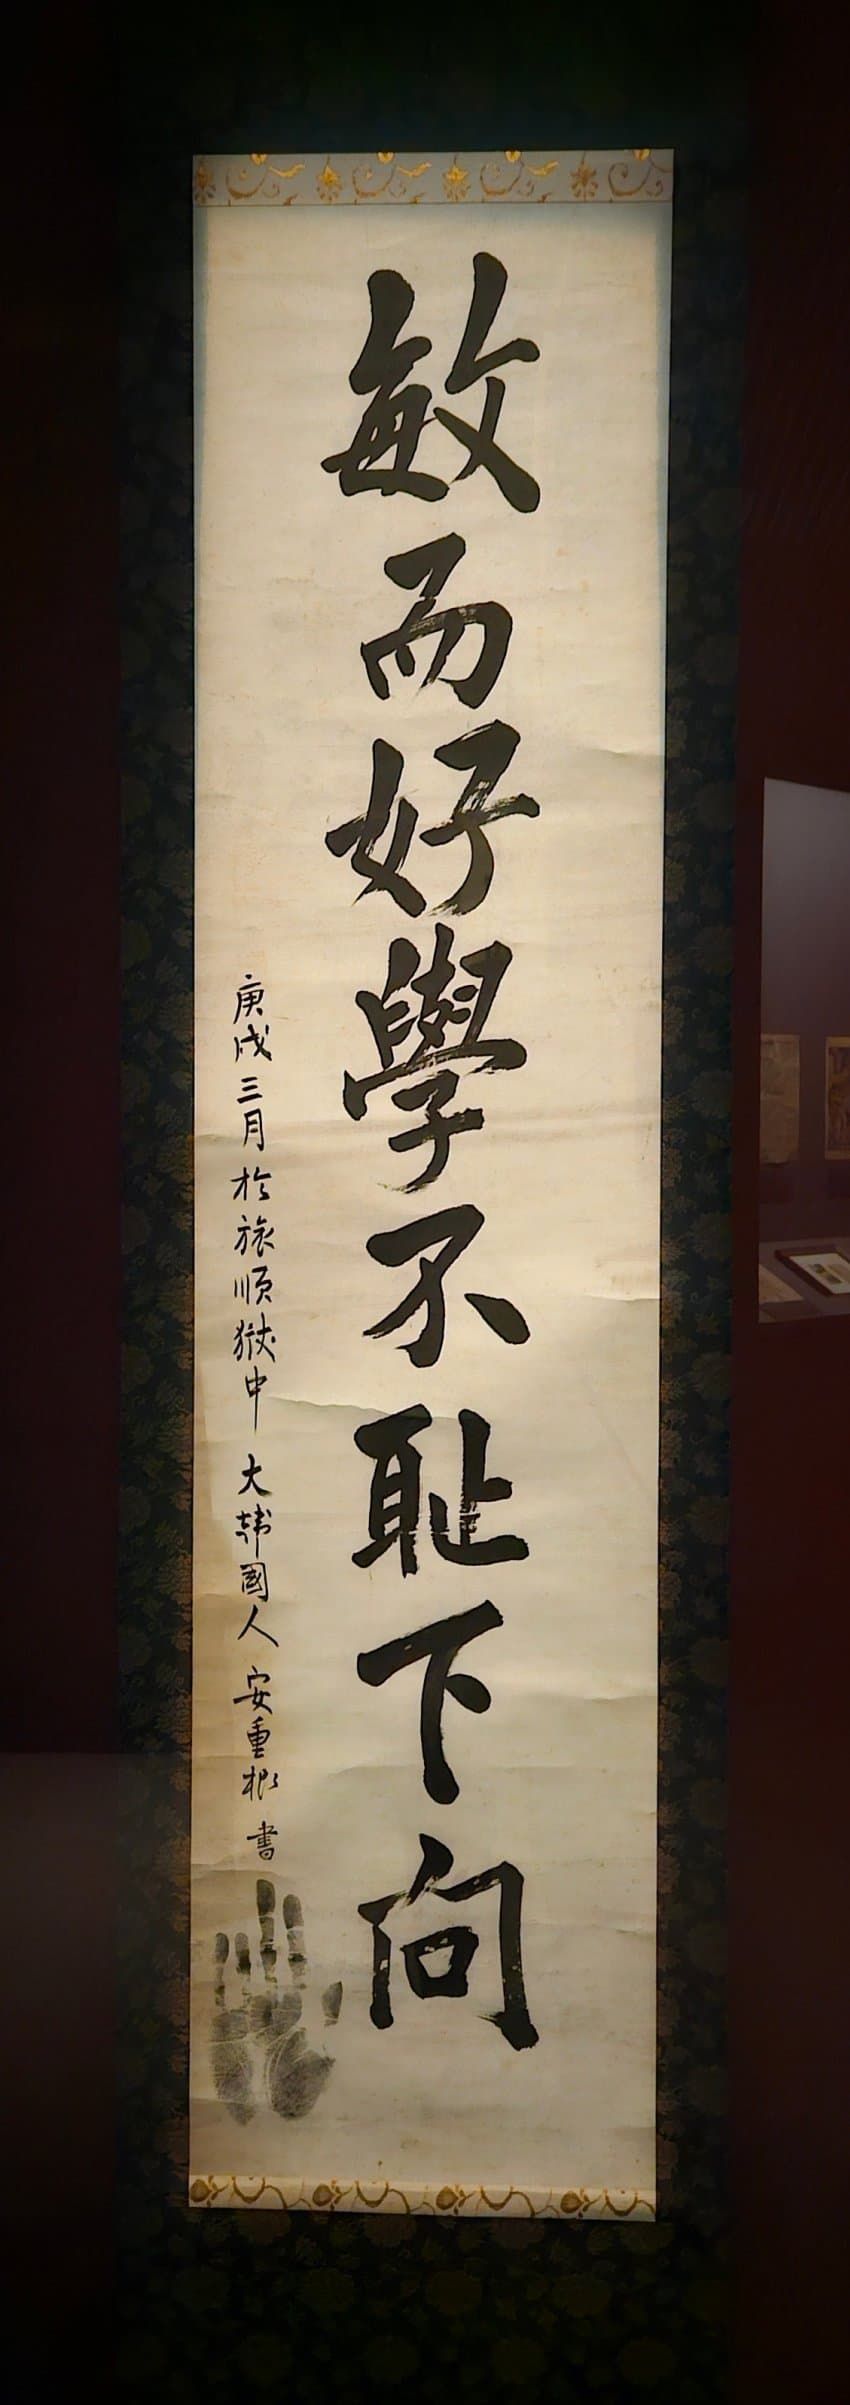 敏而好學不耻下向
庚戌三月 於旅順獄中 大韓國人 安重根 書